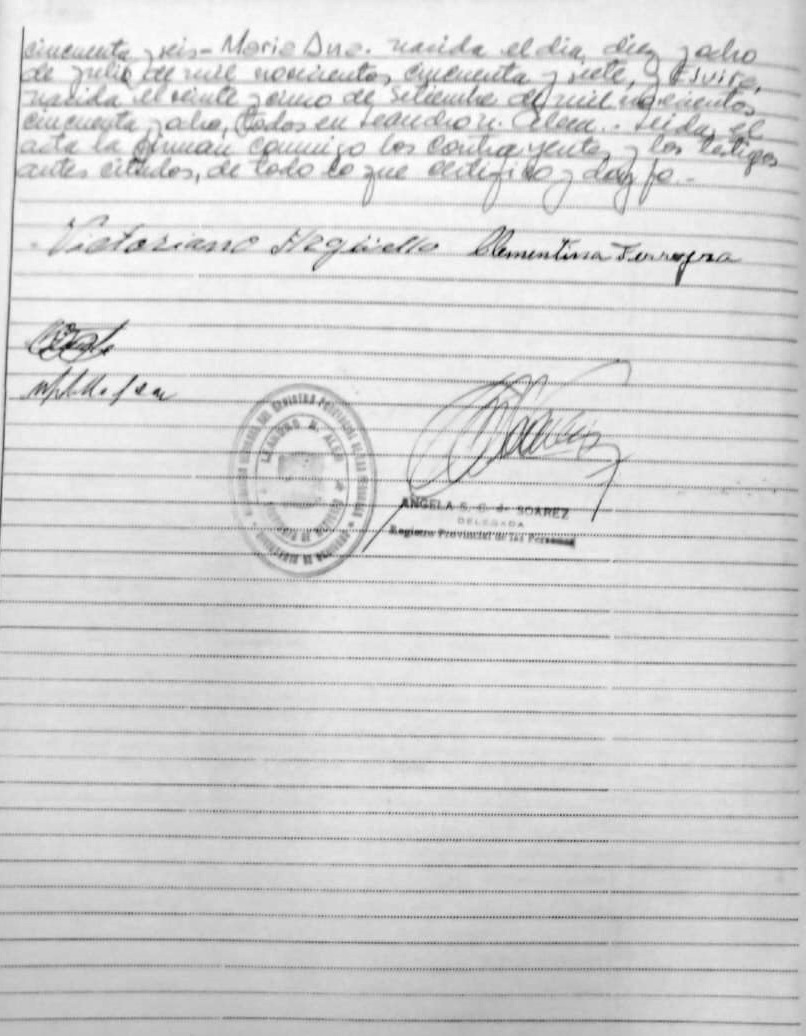 cincuenta y seis - Maria Ana. nacida el dia, diez y ocho
de julio de mil novecientos cincuenta y siete, y Elvira,
nacida el veinte y uno de Setiembre de mil novecientos
cincuenta y ocho, todos en Leandro N. Alem. - Leida, el
acta la firman conmigo los contrayentes y los testigos
antes citados, de todo lo que certifico y doy fe. -
Victoriano Clementina Ferreyra
LEANDRO N. ALEM
ANGELA S. C. de SOAREZ
DELEGADA
Registro Provincial de las Personas